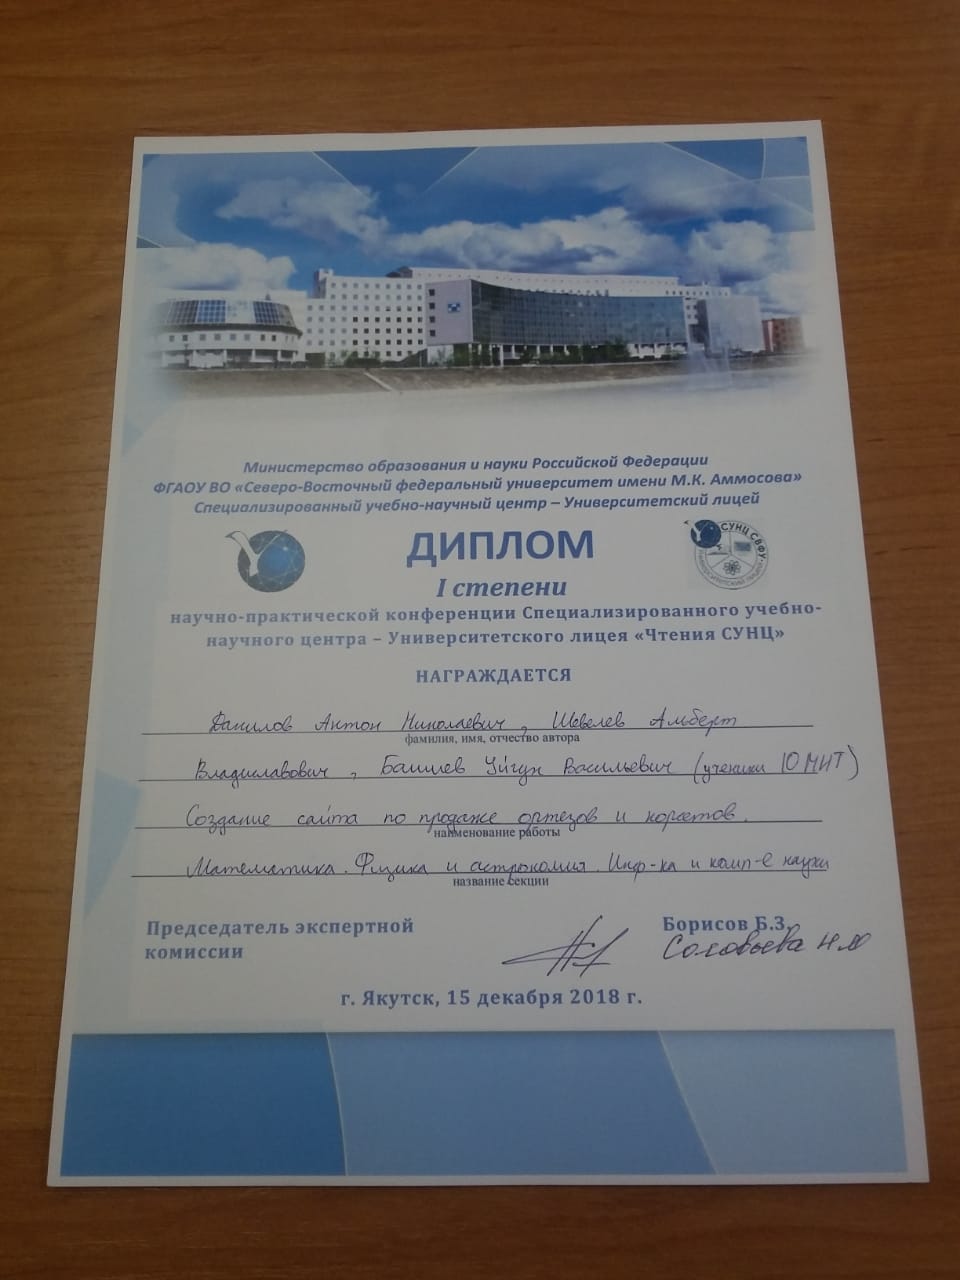 Министерство образования и науки Российской Федерации
ФГАОУ ВО «Северо-Восточный федеральный университет имени М.К. Аммосова»
Специализированный учебно-научный центр – Университетский лицей
ДИПЛОМ
СУНЦ СВФУ
УНИВЕРСИТЕТСКИЙ ЛИЦЕЙ
I степени
научно-практической конференции Специализированного учебно-
научного центра – Университетского лицея «Чтения СУНЦ»
НАГРАЖДАЕТСЯ
Данилов Антон Николаевич, Шевелев Альберт
фамилия, имя, отчество автора
Владиславович, Уйгун Васильевич (ученики 10 МИТ)
Создание сайта по продаже ортезов и корсетов.
наименование работы
Математика. Физика и астрономия. Инф-ка и комп-е науки
название секции
Председатель экспертной
комиссии
Борисов Б.З.
Соловьева
г. Якутск, 15 декабря 2018 г.